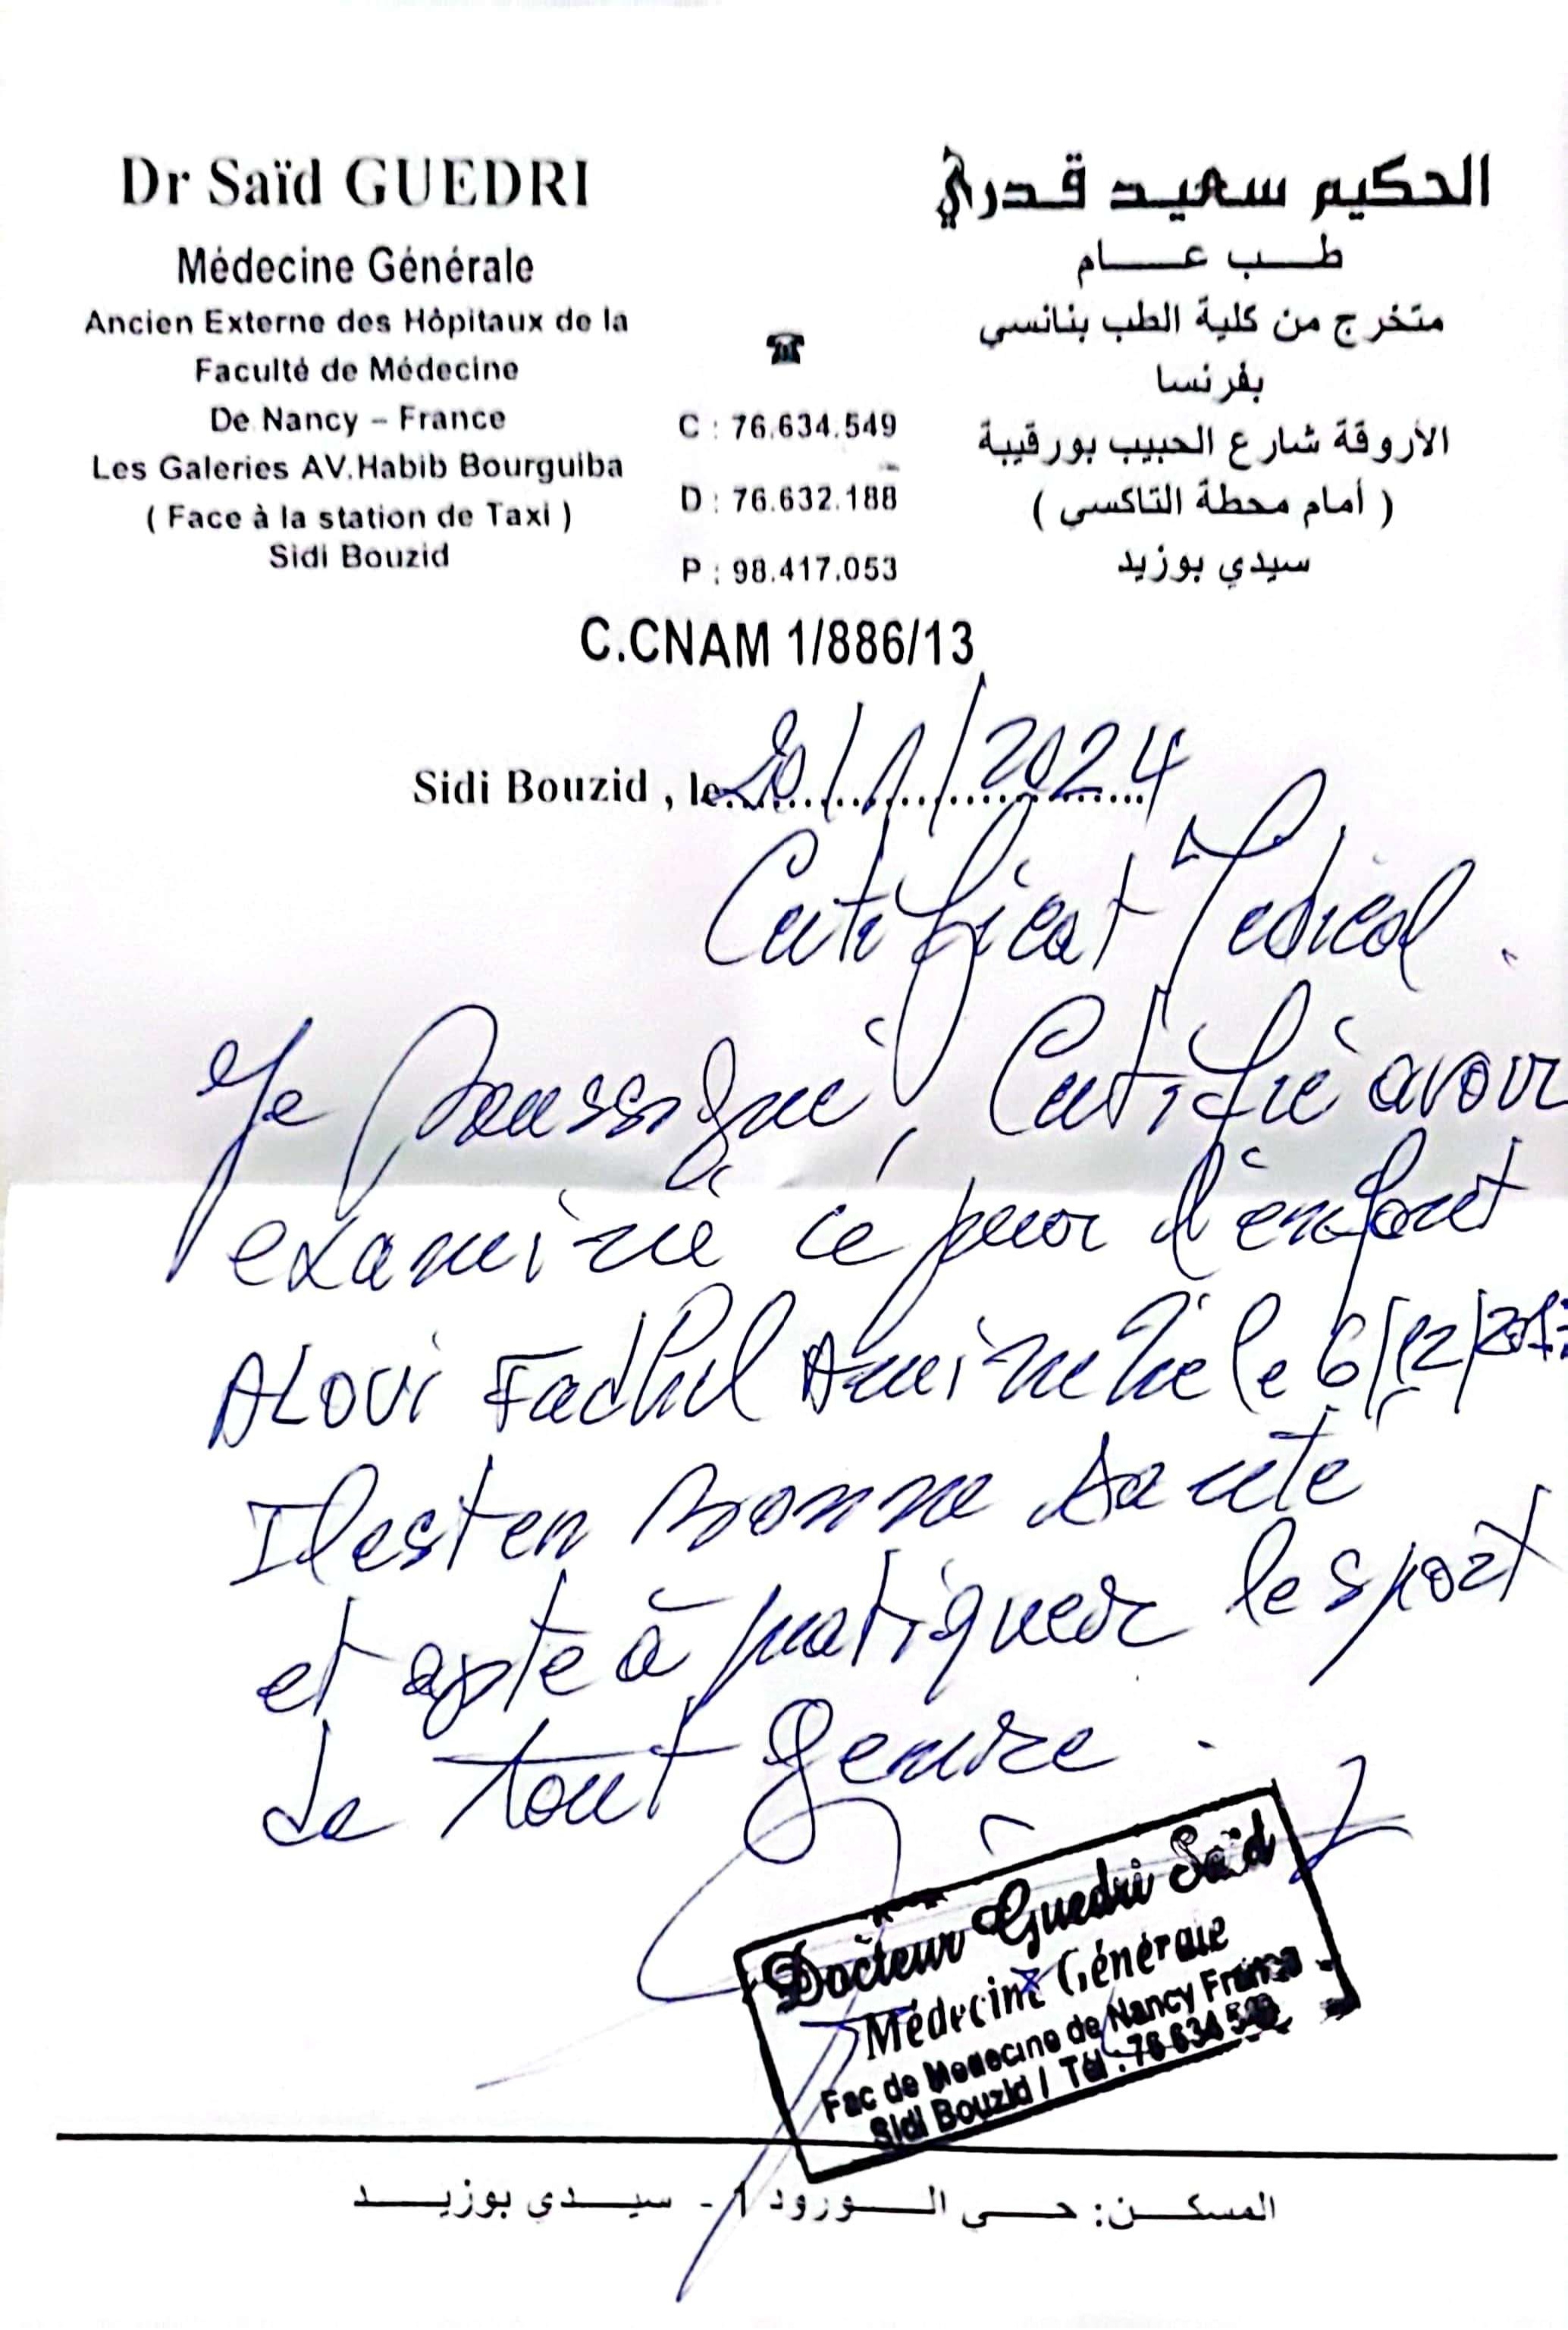 Dr Saïd GUEDRI
Médecine Générale
Ancien Externe des Hôpitaux de la
Faculté de Médecine
De Nancy – France
Les Galeries AV.Habib Bourguiba
( Face à la station de Taxi )
Sidi Bouzid
☎
C : 76.634.549
D : 76.632.188
P : 98.417.053
الحكيم سعيد قدري
طب عام
متخرج من كلية الطب بنانسي
بفرنسا
الأروقة شارع الحبيب بورقيبة
( أمام محطة التاكسي )
سيدي بوزيد
C.CNAM 1/886/13
Sidi Bouzid , le 20/1/2024
Certificat Médical .
Je soussigné, Certifié avoir
examiné ce jour l'enfant
ALOUI Fadhel Amine né le 6/12/2017
Il est en Bonne santé
et apte à pratiquer le sport
de tout genre .
Docteur Guedri Saïd
Médecine Générale
Fac de Médecine de Nancy France
Sidi Bouzid / Tél : 76 634 549
المسكن: حي الورود 1 - سيدي بوزيد